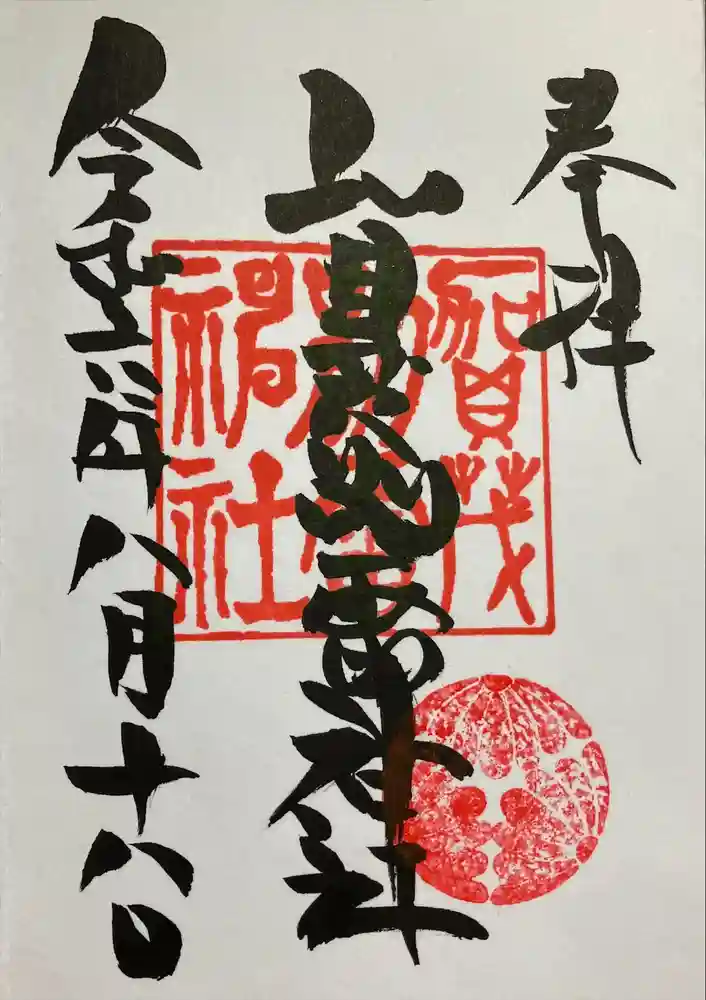 奉拝
賀茂別雷神社
令和五年八月十八日
賀茂
別雷
神社